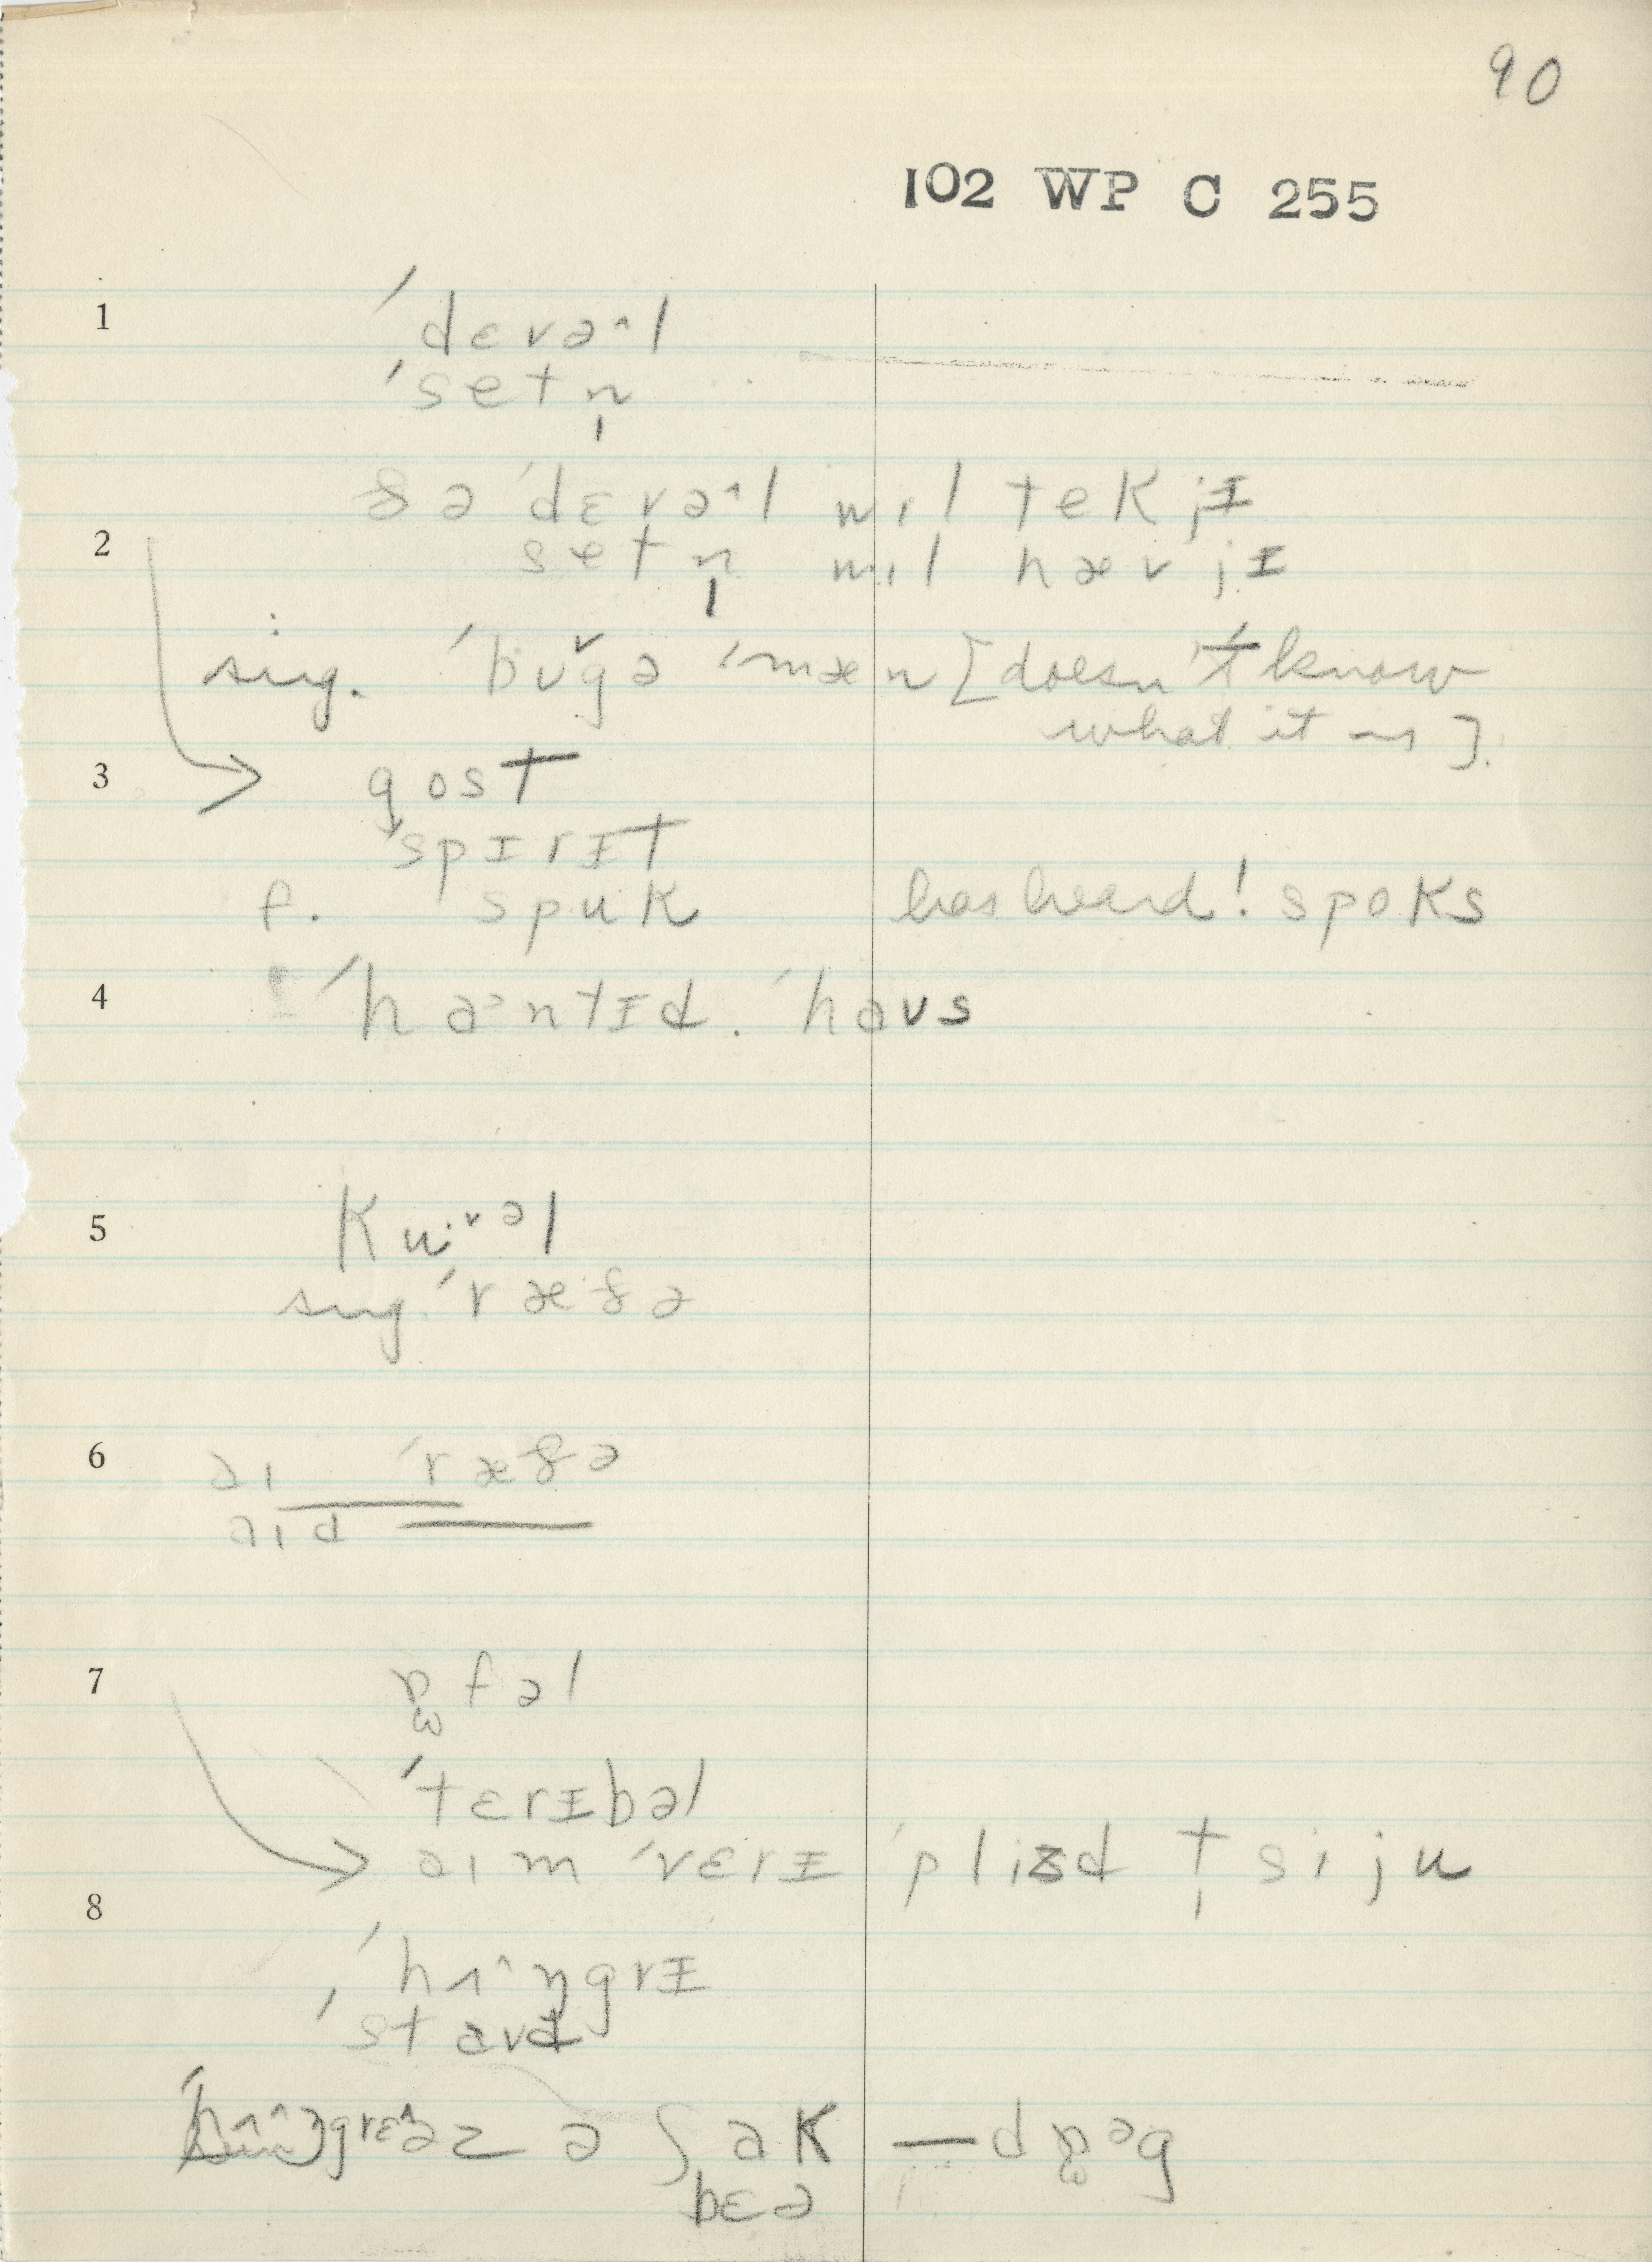 90
102 WP C 255
1 ˈdɛvəˆl
ˈsetn̩
ðə ˈdɛvəˆl wɪl tek jɪ
2 setn̩ wɪl hæv jɪ
sug. ˈbʊ̌gə ˈmæn [doesn't know
what it is].
3 gost
ˈspɪrɪt
f. spuk has heard! spoks
4 ˈhɑᵊntɪd ˈhaʊs
5 Kwᵊl
sug. ˈræðə
6 aɪ ˈræðə
aɪd
7 ɒfəl
ˈtɛrɪbəl
aɪm ˈvɛrɪ ˈplizd t̩ si ju
8 ˈhʌˆŋgrɪ
ˈstɑvd
əz ə ʃɑk — dɒᵊg
bɛə